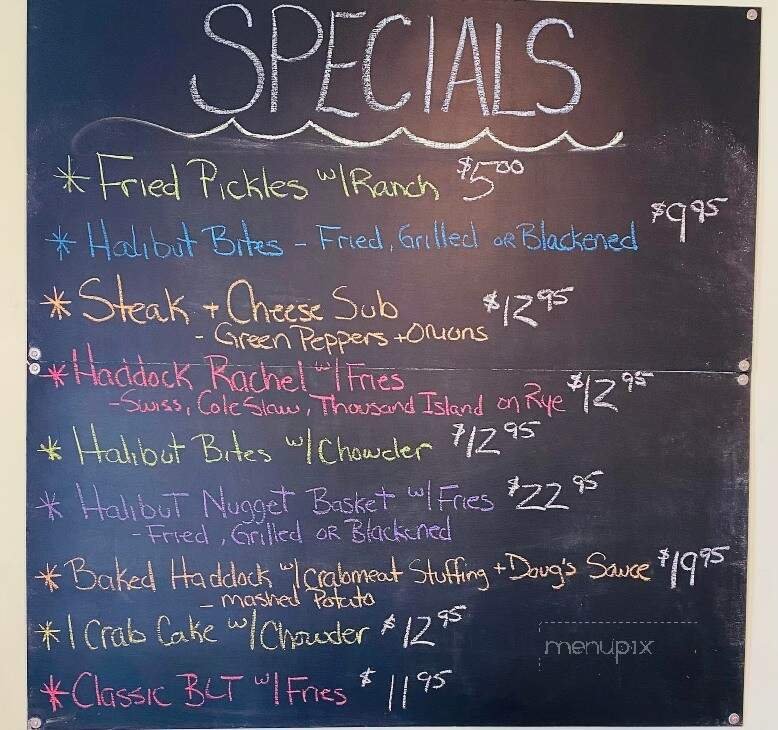 SPECIALS
* Fried Pickles w/ Ranch $5.00
* Halibut Bites - Fried, Grilled or Blackened $9.95
* Steak + Cheese Sub $12.95
- Green Peppers + Onions
* Haddock Rachel w/ Fries
- Swiss, Cole Slaw, Thousand Island on Rye $12.95
* Halibut Bites w/ Chowder $12.95
* Halibut Nugget Basket w/ Fries $22.95
- Fried, Grilled or Blackened
* Baked Haddock w/ Crabmeat Stuffing + Doug's Sauce $19.95
- mashed Potato
* 1 Crab Cake w/ Chowder $12.95
menupix
* Classic BLT w/ Fries $11.95